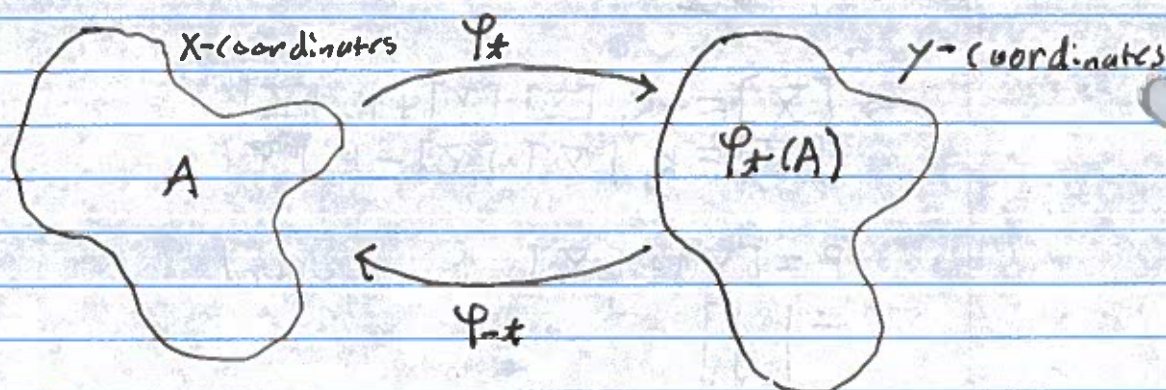 X-coordinates φt y-coordinates
A φt(A)
φ-t